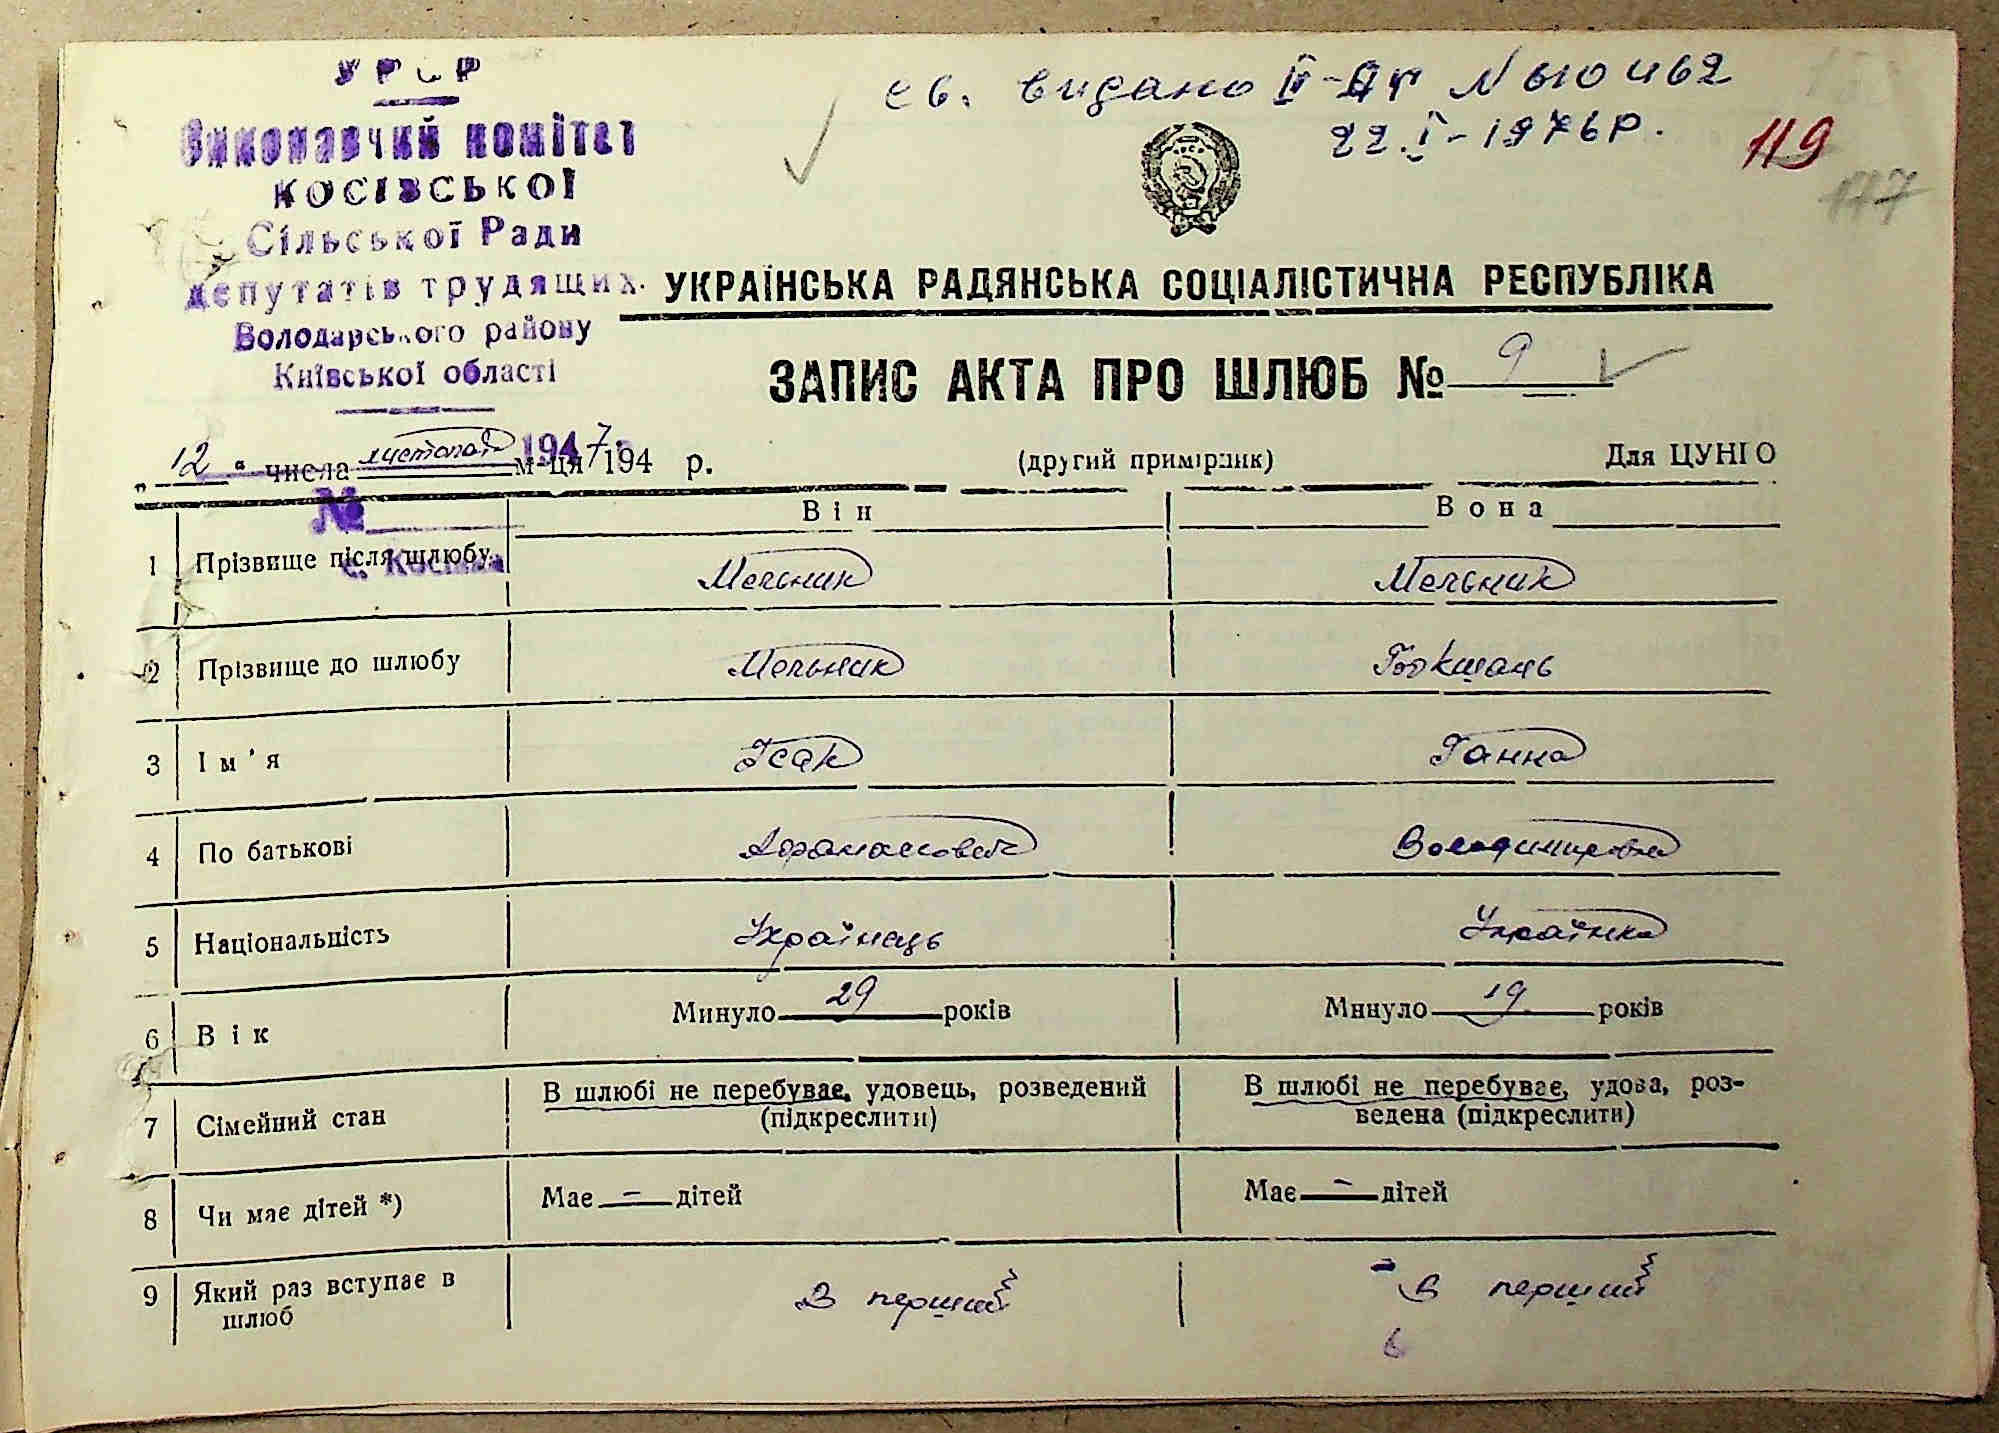 УРСР
Виконавчий комітет
КОСІВСЬКОЇ
Сільської Ради
депутатів трудящих
Володарського району
Київської області
св. видано ІІ-
22.І-1976р.
119
117
УКРАЇНСЬКА РАДЯНСЬКА СОЦІАЛІСТИЧНА РЕСПУБЛІКА
ЗАПИС АКТА ПРО ШЛЮБ № 9
„12“ числа листопад м-ця 1947 194 р.
(другий примірник)
Для ЦУНГО
№
Він Вона
1 Прізвище після шлюбу Мельник Мельник
2 Прізвище до шлюбу Мельник
3 Ім'я Ісак Ганна
4 По батькові Афанасович Володимировна
5 Національність Українець Українка
6 Вік Минуло 29 років Минуло 19 років
7 Сімейний стан В шлюбі не перебуває, удовець, розведений (підкреслити) В шлюбі не перебуває, удова, роз-
ведена (підкреслити)
8 Чи має дітей *) Має — дітей Має — дітей
9 Який раз вступає в шлюб В перший В перший